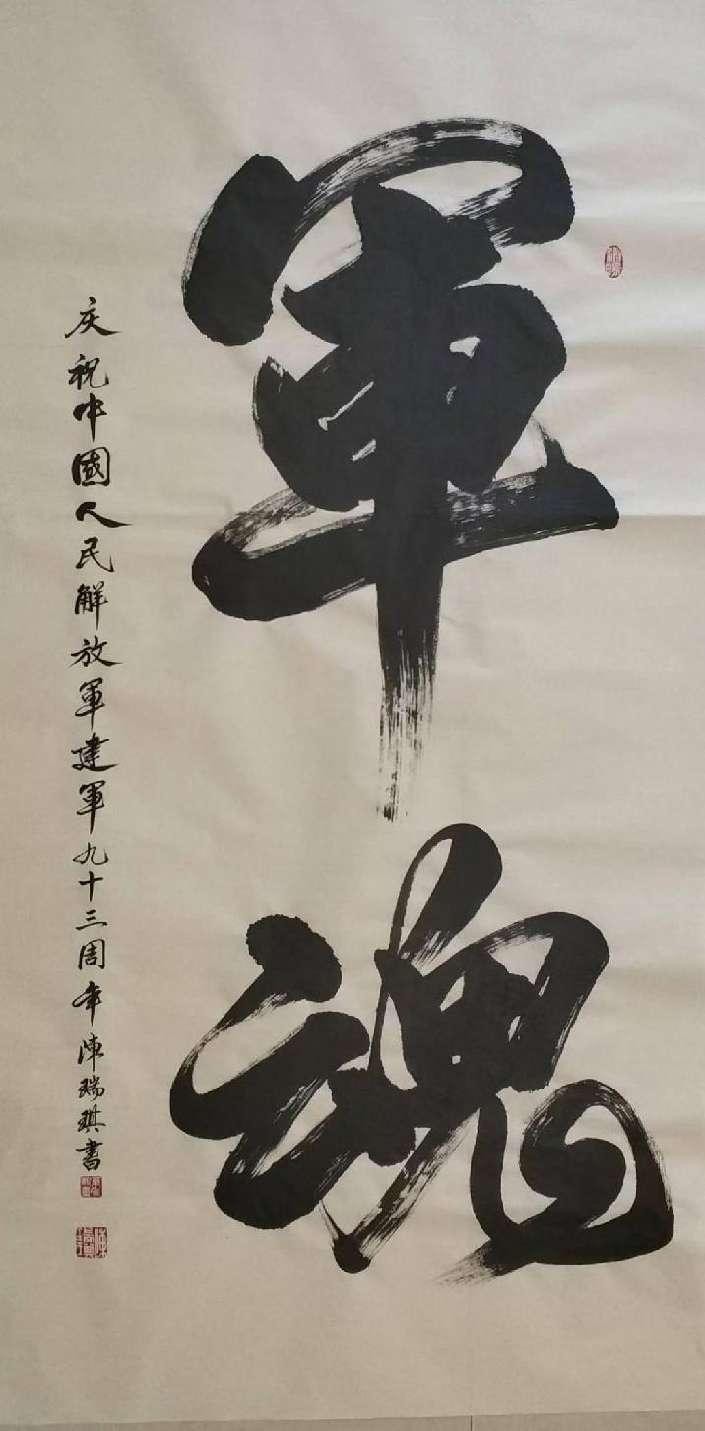 軍魂
庆祝中國人民解放軍建軍九十三周年陳瑞琪書